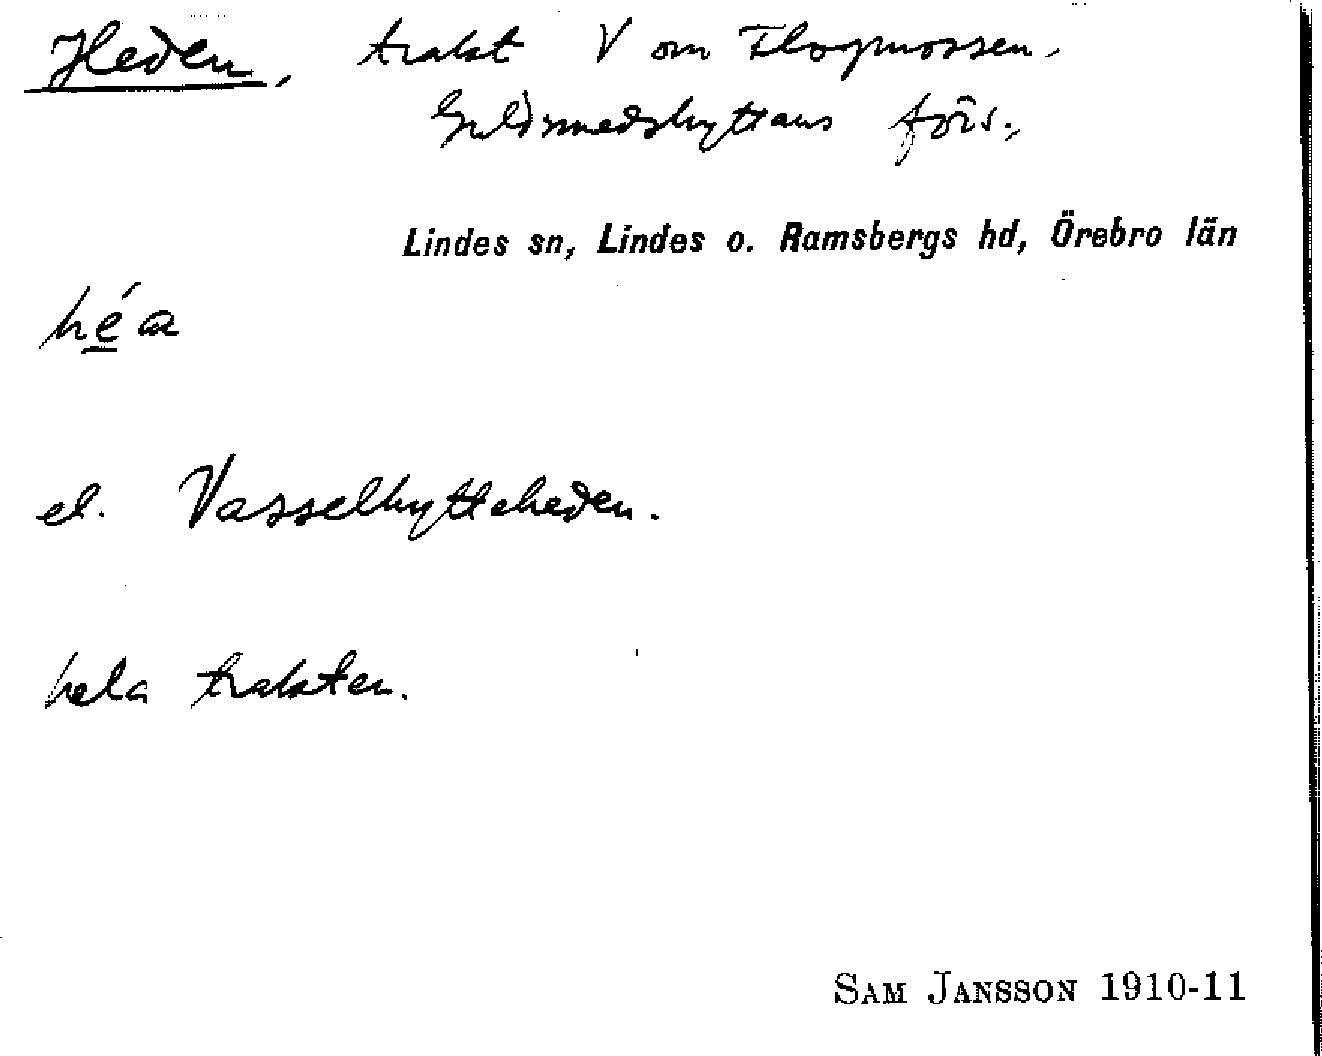 Heden, trakt V om Flogmossen.
Guldsmedshyttans förs.,
Lindes sn, Lindes o. Ramsbergs hd, Örebro län
héa
el. Vasselhytteheden.
hela trakten.
SAM JANSSON 1910-11